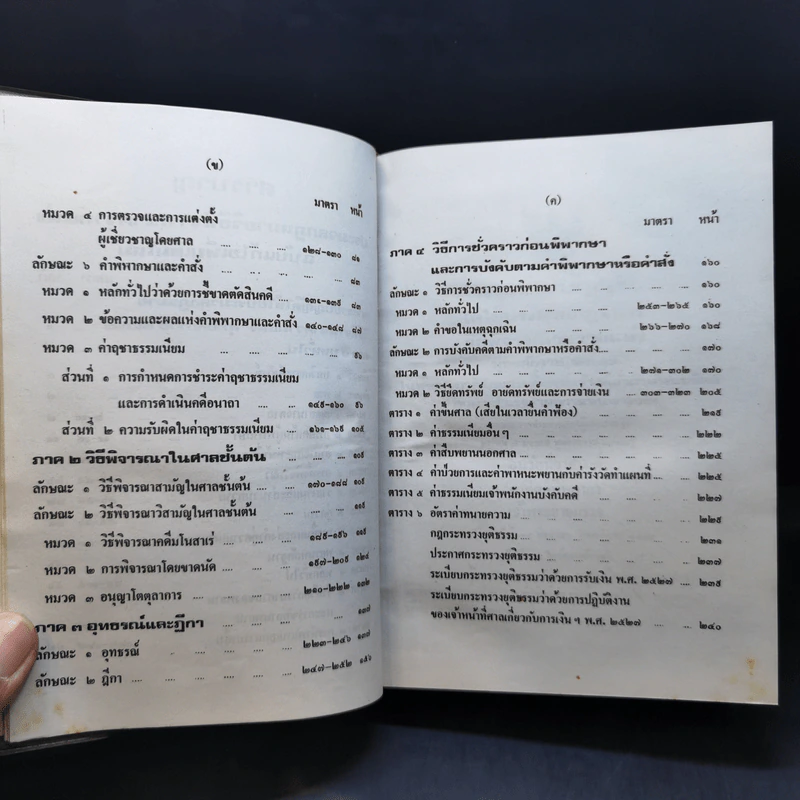 (ข)
มาตรา หน้า
หมวด ๔ การตรวจและการแต่งตั้ง
ผู้เชี่ยวชาญโดยศาล .... .... ๑๒๘-๑๓๐ ๘๑
ลักษณะ ๖ คำพิพากษาและคำสั่ง .... .... .... ๘๓
หมวด ๑ หลักทั่วไปว่าด้วยการชี้ขาดตัดสินคดี .... ๑๓๑-๑๓๙ ๘๓
หมวด ๒ ข้อความและผลแห่งคำพิพากษาและคำสั่ง ๑๔๐-๑๔๘ ๘๗
หมวด ๓ ค่าฤชาธรรมเนียม .... .... .... .... ๙๖
ส่วนที่ ๑ การกำหนดการชำระค่าฤชาธรรมเนียม
และการดำเนินคดีอนาถา .... .... ๑๔๙-๑๖๐ ๙๖
ส่วนที่ ๒ ความรับผิดในค่าฤชาธรรมเนียม .... ๑๖๑-๑๖๙ ๑๐๕
ภาค ๒ วิธีพิจารณาในศาลชั้นต้น .... .... .... ๑๑๙
ลักษณะ ๑ วิธีพิจารณาสามัญในศาลชั้นต้น .... ๑๗๐-๑๘๘ ๑๑๙
ลักษณะ ๒ วิธีพิจารณาวิสามัญในศาลชั้นต้น .... .... ๑๑๙
หมวด ๑ วิธีพิจารณาคดีมโนสาเร่ .... .... ๑๘๙-๑๙๖ ๑๑๙
หมวด ๒ การพิจารณาโดยขาดนัด .... .... ๑๙๗-๒๐๙ ๑๒๔
หมวด ๓ อนุญาโตตุลาการ .... .... .... ๒๑๐-๒๒๒
ภาค ๓ อุทธรณ์และฎีกา .... .... .... ๑๓๗
ลักษณะ ๑ อุทธรณ์ .... .... .... .... ๒๒๓-๒๔๖ ๑๓๗
ลักษณะ ๒ ฎีกา .... .... .... .... ๒๔๗-๒๕๒ ๑๕๖
(ค)
มาตรา หน้า
ภาค ๔ วิธีการชั่วคราวก่อนพิพากษา
และการบังคับตามคำพิพากษาหรือคำสั่ง ๑๖๐
ลักษณะ ๑ วิธีการชั่วคราวก่อนพิพากษา .... .... .... ๑๖๐
หมวด ๑ หลักทั่วไป .... .... .... .... ๒๕๓-๒๖๕ ๑๖๐
หมวด ๒ คำขอในเหตุฉุกเฉิน .... .... .... ๒๖๖-๒๗๐ ๑๖๘
ลักษณะ ๒ การบังคับคดีตามคำพิพากษาหรือคำสั่ง.... .... ๑๗๐
หมวด ๑ หลักทั่วไป .... .... .... .... ๒๗๑-๓๐๒ ๑๗๐
หมวด ๒ วิธียึดทรัพย์ อายัดทรัพย์และการจ่ายเงิน ๓๐๓-๓๒๓ ๒๐๕
ตาราง ๑ ค่าขึ้นศาล (เสียในเวลายื่นคำฟ้อง) .... .... ๒๑๙
ตาราง ๒ ค่าธรรมเนียมอื่น ๆ .... .... .... .... ๒๒๒
ตาราง ๓ ค่าสืบพยานนอกศาล .... .... .... .... ๒๒๕
ตาราง ๔ ค่าป่วยการและค่าพาหนะพยานกับค่ารังวัดทำแผนที่ .... ๒๒๕
ตาราง ๕ ค่าธรรมเนียมเจ้าพนักงานบังคับคดี .... .... ๒๒๗
ตาราง ๖ อัตราค่าทนายความ .... .... .... .... ๒๒๙
กฎกระทรวงยุติธรรม .... .... .... .... ๒๓๑
ประกาศกระทรวงยุติธรรม .... .... .... .... ๒๓๗
ระเบียบกระทรวงยุติธรรมว่าด้วยการรับเงิน พ.ศ. ๒๕๒๗ .... ๒๓๙
ระเบียบกระทรวงยุติธรรมว่าด้วยการปฏิบัติงาน
ของเจ้าหน้าที่ศาลเกี่ยวกับการเงิน ฯ พ.ศ. ๒๕๒๗ .... ๒๔๐